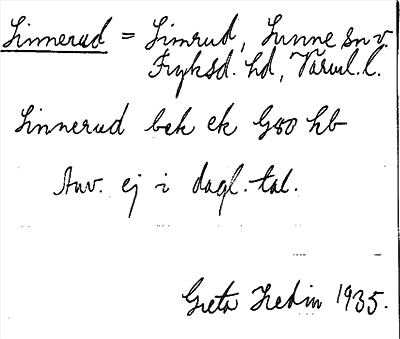 Linnerud = Limrud, Sunne sn v.
Fryksd. hd, Värml. l.
Linnerud bek ek G80 hb
Anv. ej i dagl. tal.
Greta Hedin 1935.